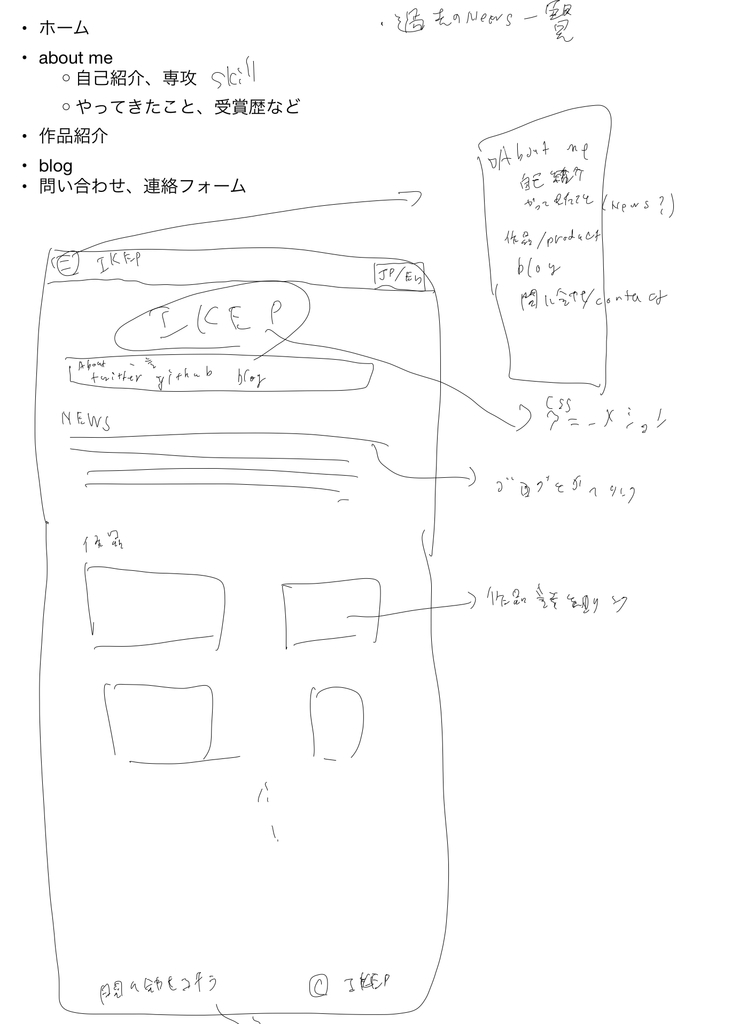 ・過去のNews一覧
• ホーム
• about me
○ 自己紹介、専攻 skill
○ やってきたこと、受賞歴など
• 作品紹介
• blog
• 問い合わせ、連絡フォーム
About me
自己紹介
やってきたこと (News?)
作品/product
blog
問い合わせ/contact
IKEP
JP/En
IKEP
About
twitter github blog
CSS
アニメーション
NEWS
作品
© IKEP